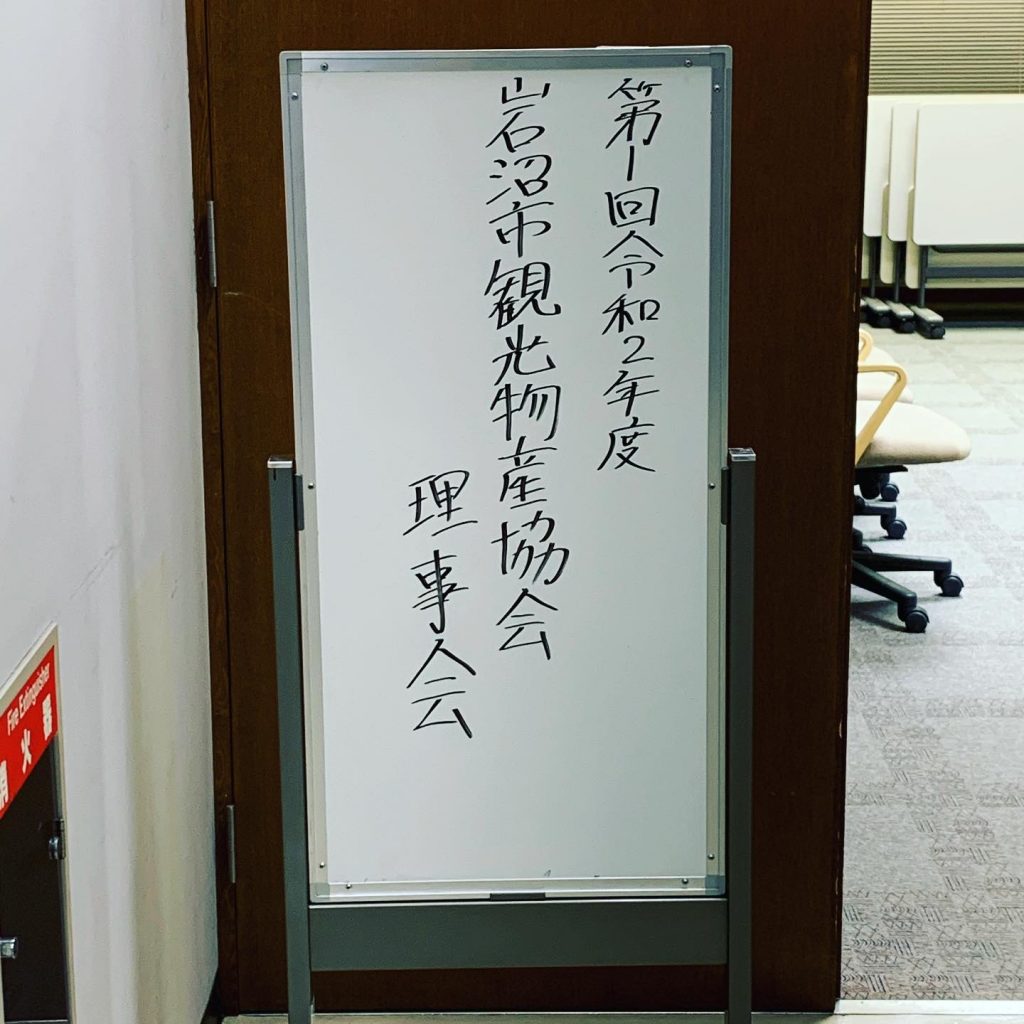 第1回令和2年度
岩沼市観光物産協会
理事会
Fire Extinguisher
消火器